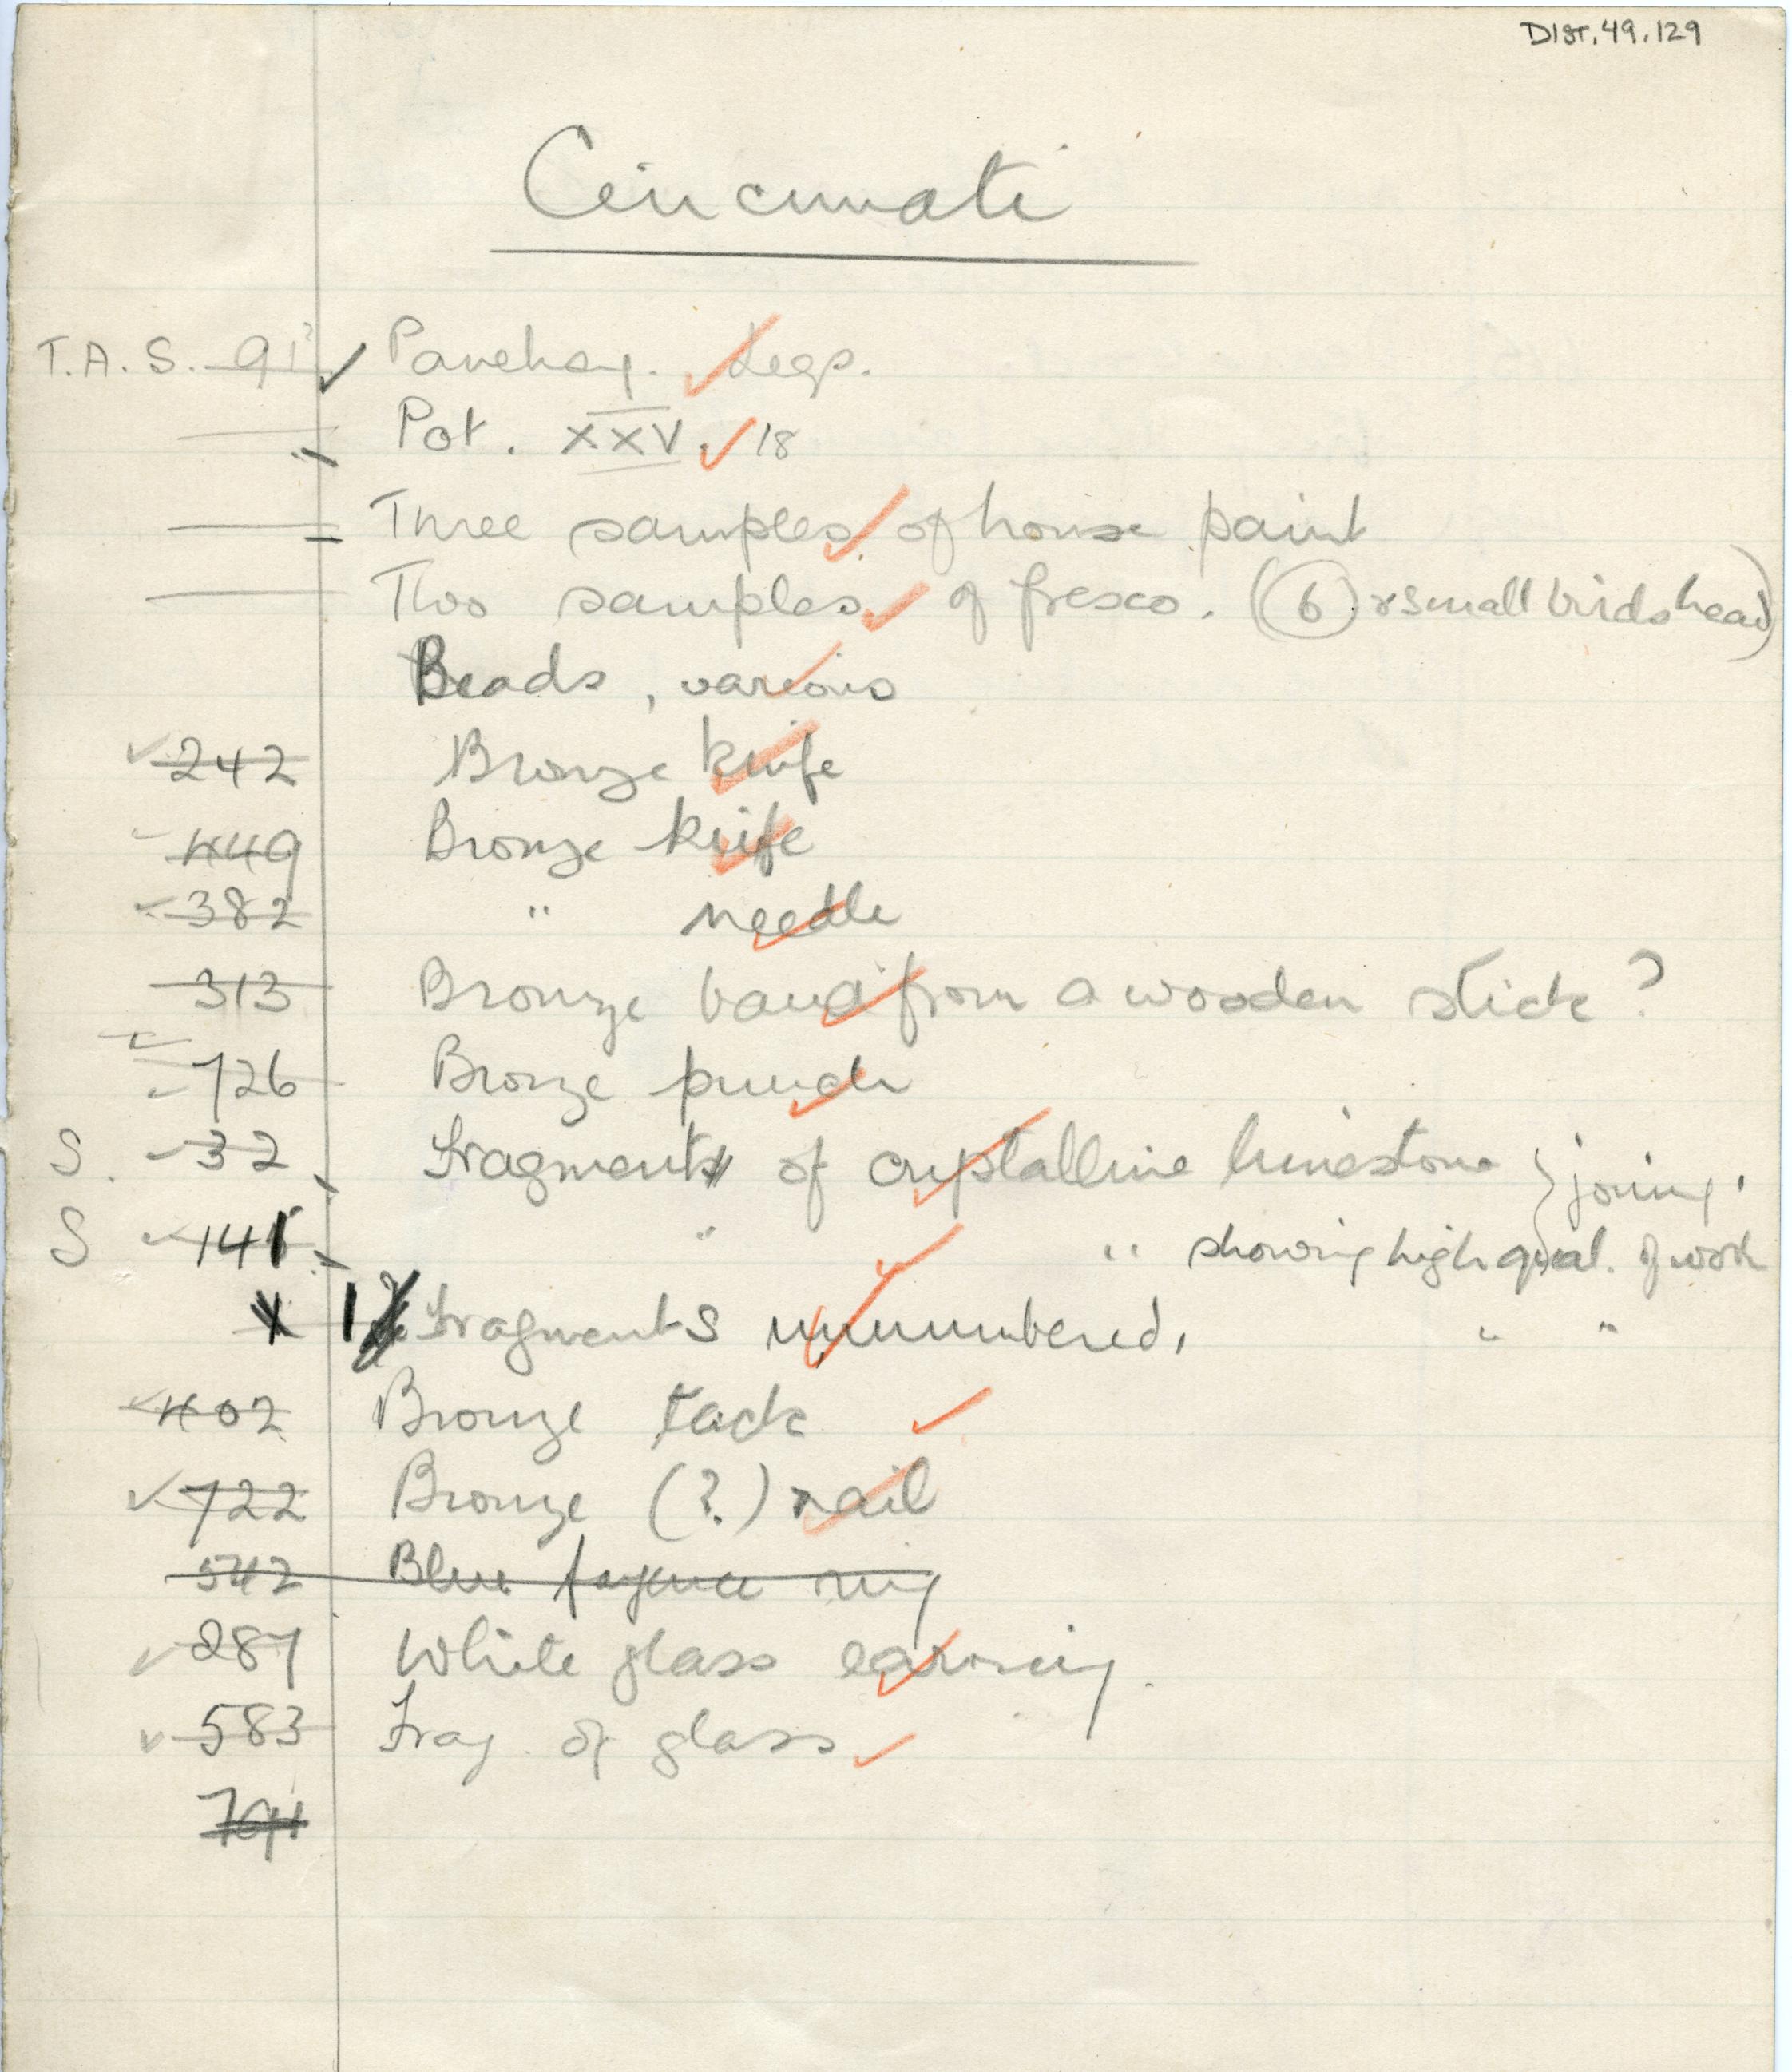 DIST.49.129
Cincinnati
T.A.S. 91? Panehsy. Legs.
Pot. XXV. 18
Three samples of house paint
Two samples of fresco. (6 & small birds head)
Beads, various
242 Bronze knife
449 Bronze knife
382 " needle
313 Bronze band from a wooden stick?
726 Bronze punch
S. 32 Fragments of crystalline limestone } joining.
S 141 " " showing high qual. of work
X 1 Fragments unnumbered, " "
402 Bronze tack
722 Bronze (?) nail
542 Blue fayence ring
287 White glass earring.
583 Frag. of glass